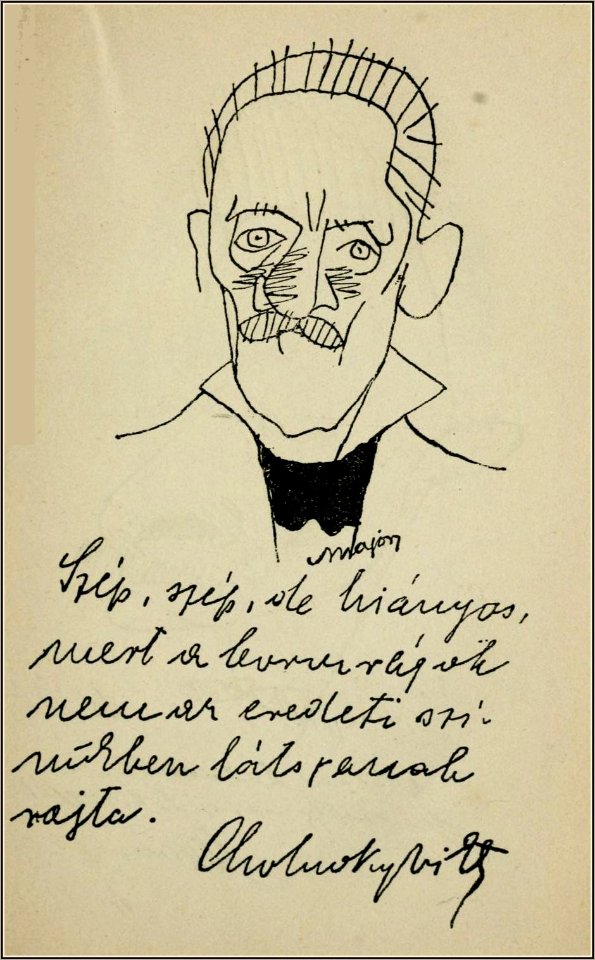 Major
Szép, szép, de hiányos,
mert a borvirágok
nem az eredeti szí-
nükben látszanak
rajta.
Cholnoky Vikt